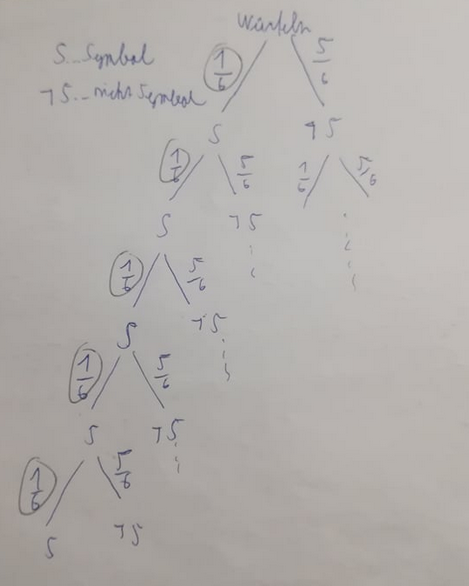 Würfeln
S...Symbol
¬S...nicht Symbol
1/6 5/6
S ¬S
1/6 5/6 1/6 5/6
S ¬S
1/6 5/6
S ¬S
1/6 5/6
S ¬S
1/6 5/6
S ¬S